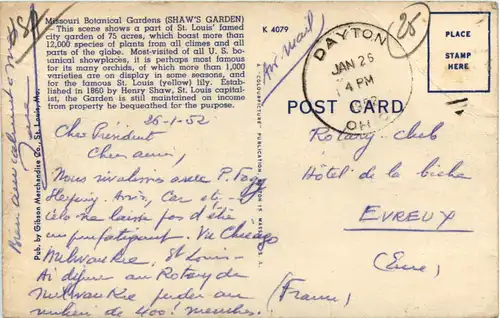 Missouri Botanical Gardens (SHAW'S GARDEN)
- This scene shows a part of St. Louis' famed
city garden of 75 acres, which boast more than
12,000 species of plants from all climes and all
parts of the globe. Most-visited of all U. S. bo-
tanical showplaces, it is perhaps most famous
for its many orchids, of which more than 1,000
varieties are on display in some seasons, and
for the famous St. Louis (yellow) lily. Estab-
lished in 1860 by Henry Shaw, St. Louis capital-
ist, the Garden is still maintained on income
from property he bequeathed for the purpose.
26-1-52
Cher Président
Cher ami,
Nous rivalisons avec P. Fogg
Avion, Car etc -
cela ne laisse pas d'être
un peu fatigant. Vu Chicago
Milwaukee, St Louis -
Ai dîné au Rotary de
Milwaukee perdu au
milieu de 400! membres.
Bien amicalement à vous
Pub. by Gibson Merchandise Co., St. Louis, Mo.
K 4079
(Air mail)
DAYTON
JAN 26
4 PM
OHIO
25
PLACE
STAMP
HERE
POST CARD
Rotary-Club
Hôtel de la biche
EVREUX
(Eure)
(France)